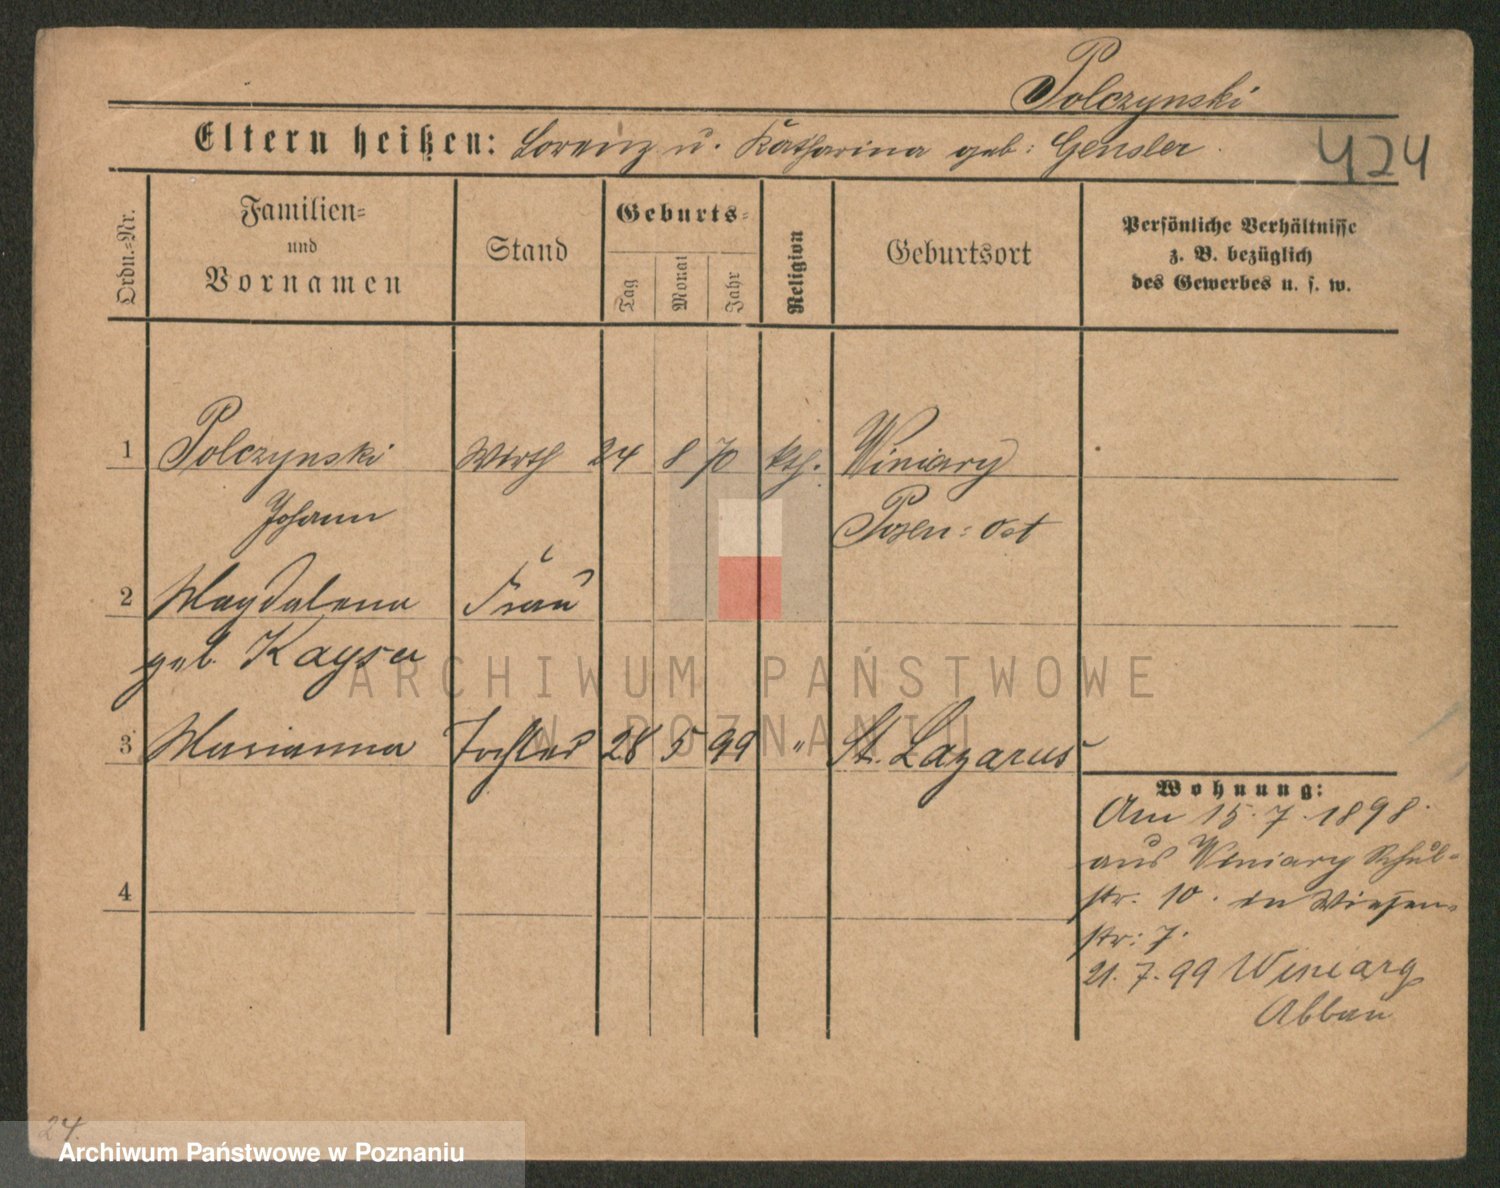 Polczynski
Eltern heißen: Lorenz u. Katharina geb: Gensler.
424
Ordn.=Nr.
Familien=
und
Vornamen
Stand
Geburts=
Tag
Monat
Jahr
Religion
Geburtsort
Persönliche Verhältnisse
z. B. bezüglich
des Gewerbes u. s. w.
1 Polczynski Wirth 24 8 70 kth. Winiary
Johann Posen=Ost
2 Magdalena Frau
geb. Kayser
3 Marianna Tochter 28 5 99 " St. Lazarus
4
Wohnung:
Am 15.7.1898.
aus Winiary Schul=
str. 10. in Wiesen=
str: 7.
21.7.99 Winiary
Abbau
ARCHIWUM PAŃSTWOWE
W POZNANIU
24.
Archiwum Państwowe w Poznaniu